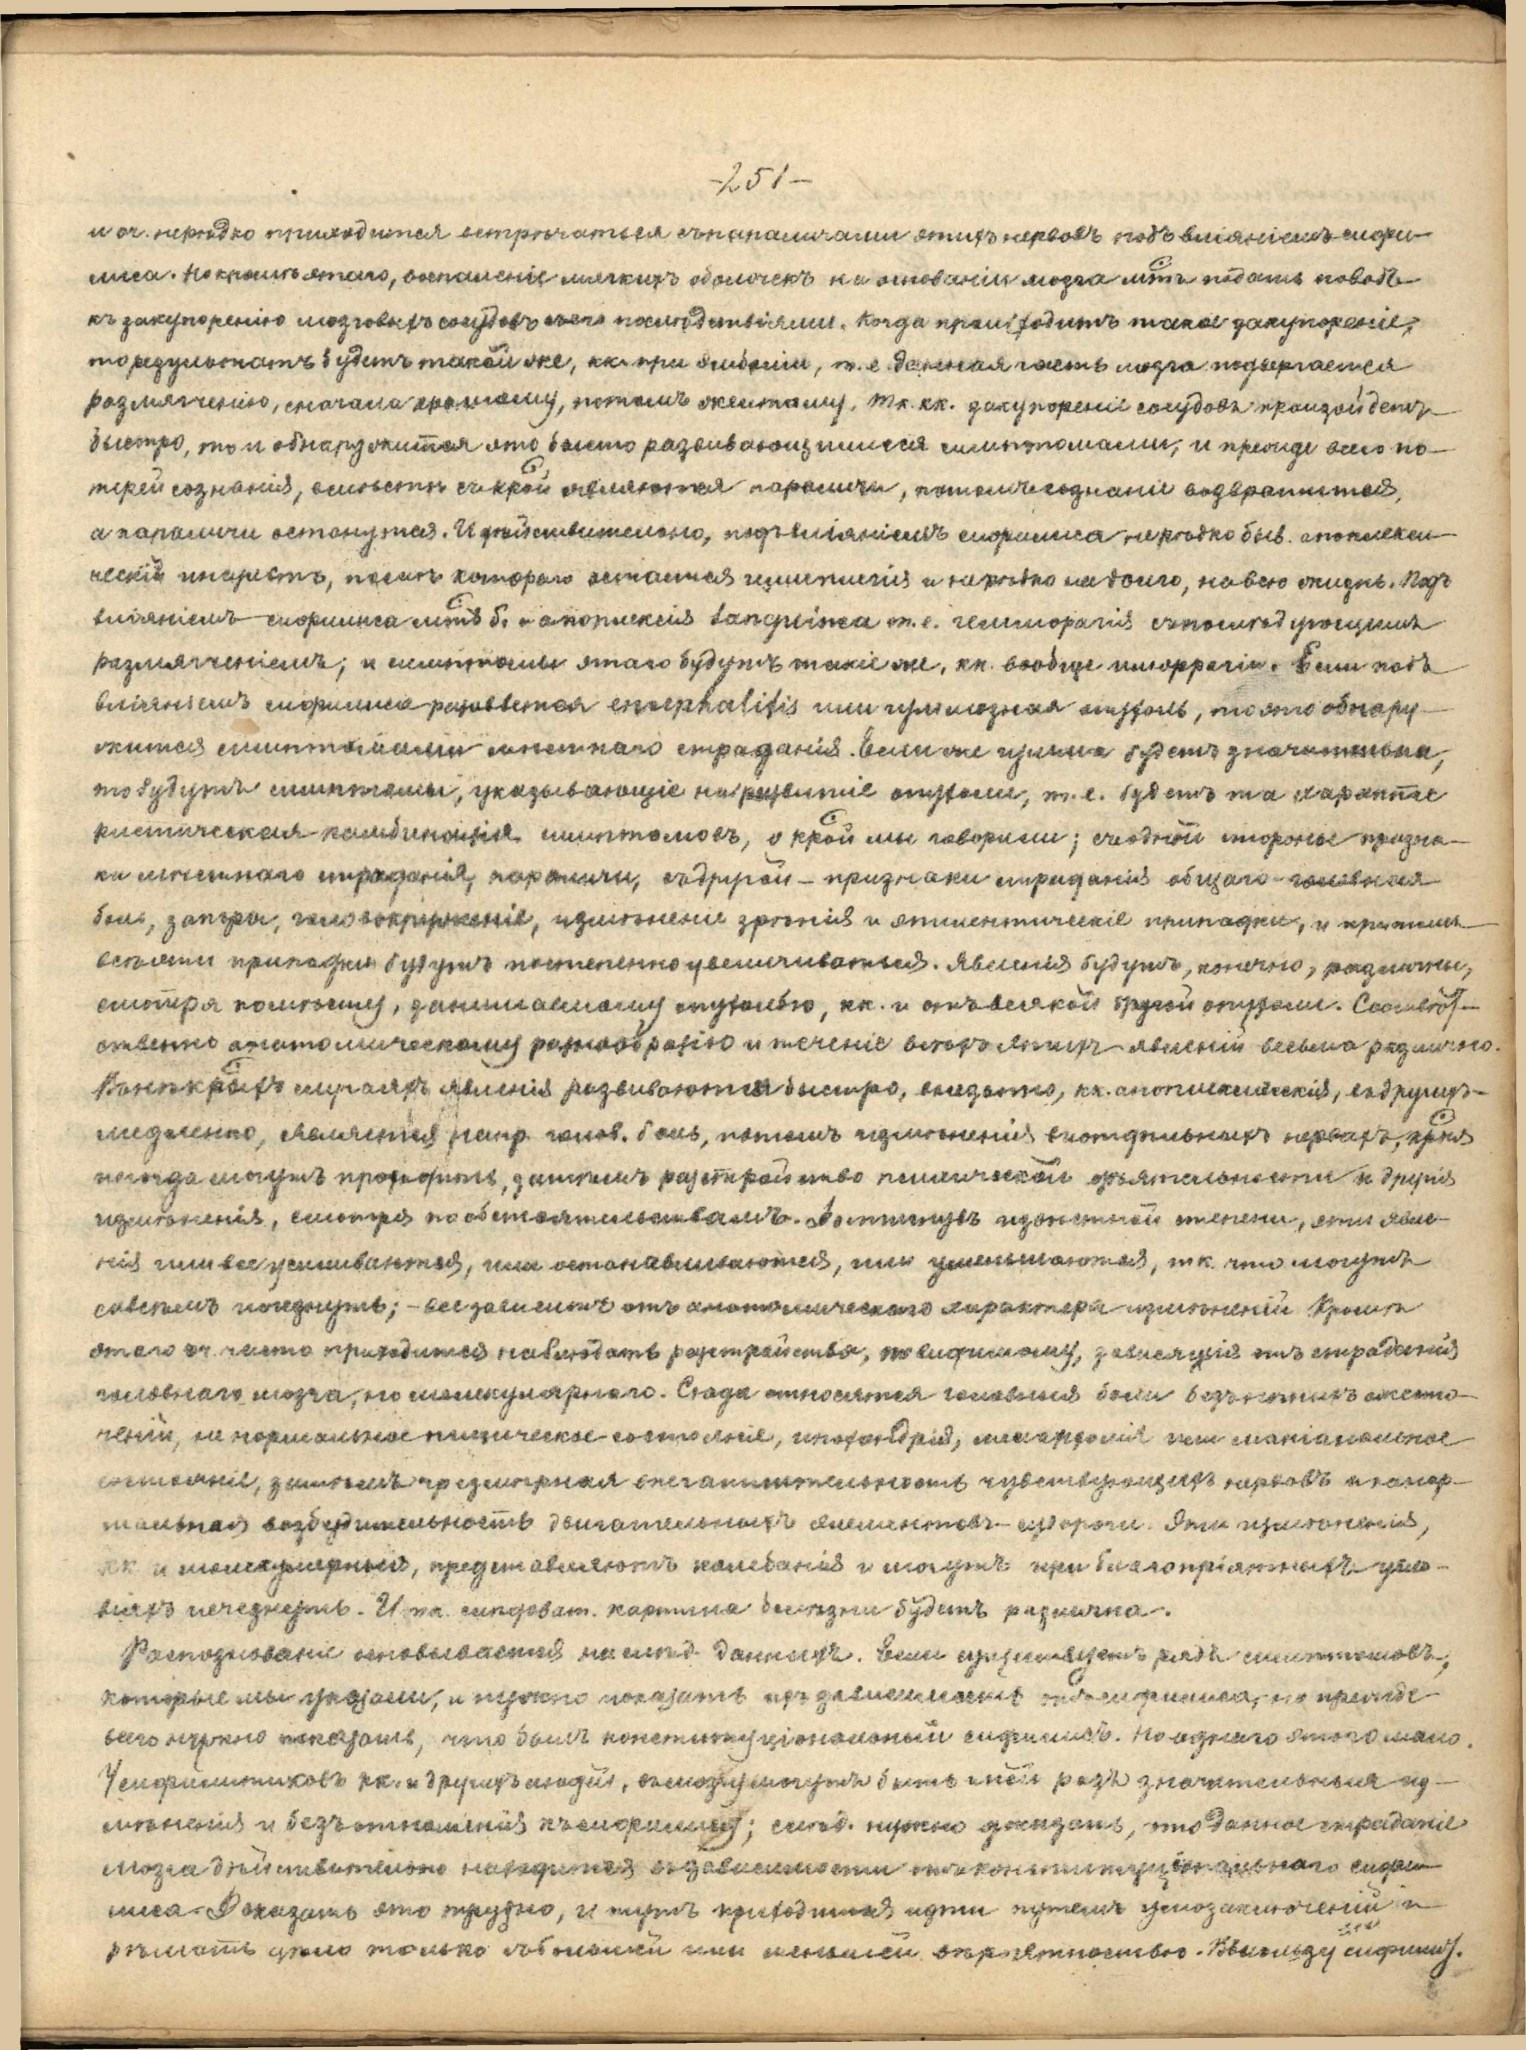 -251-
и оч. нерѣдко приходится встрѣчаться съ параличами этихъ нервовъ подъ вліяніемъ сифи-
лиса. Но кромѣ этаго, воспаленіе мягкихъ оболочекъ на основаніи мозга мтъ подать поводъ
къ закупоренію мозговыхъ сосудовъ съ его послѣдствіями. Когда происходитъ такое закупореніе,
то результатъ будетъ такой же, кк. при эмболіи, т. е. данная часть мозга подвергается
размягченію, сначала красному, потомъ желтому. Тк. кк. закупореніе сосудовъ произойдетъ
быстро, то и обнаружится это быстро развивающимися симптомами, и прежде всего по-
терей сознанія, вмѣстѣ съ крой являются параличи, потомъ сознаніе возвратится,
а параличи останутся. И дѣйствительно, подъ вліяніемъ сифилиса нерѣдко быв. апоплекси-
ческій инсультъ, послѣ котораго остается гемиплегія и нерѣдко надолго, на всю жизнь. Подъ
вліяніемъ сифилиса мтъ б. и апоплексія sanguinea т. е. геммораггія съ послѣдующимъ
размягченіемъ; и симптомы этаго будутъ такіе же, кк. вообще гиморрагіи. Если подъ
вліяніемъ сифилиса разовьется encephalitis или гуммозная опухоль, то это обнару-
жится симптомами мѣстнаго страданія. Если же гумма будетъ значительна,
то будутъ симптомы, указывающіе на развитіе опухоли, т. е. будетъ та характе-
ристическая комбинація симптомовъ, о крой мы говорили; съ одной стороны призна-
ки мѣстнаго страданія, параличи, съ другой - признаки страданія общаго - головная
боль, запоры, головокруженіе, измѣненіе зрѣнія и эпилептическіе припадки, и притомъ
всѣ эти припадки будутъ постепенно увеличиваться. Явленія будутъ, конечно, различны,
смотря по мѣсту, занимаемому опухолью, кк. и отъ всякой другой опухоли. Соотвѣт-
ственно анатомическому разнообразію и теченіе всѣхъ этихъ явленій весьма различно.
Въ нѣкрыхъ случаяхъ явленія развиваются быстро, внезапно, кк. апоплексическія, въ другихъ
медленно, является напр. голов. боль, потомъ измѣненія въ отдѣльныхъ нервахъ, крыя
иногда могутъ проходить, затѣмъ разстройство психической дѣятельности и другія
измѣненія, смотря по обстоятельствамъ. Достигнувъ извѣстной степени, эти явле-
нія или все усиливаются, или останавливаются, или уменьшаются, тк. что могутъ
совсѣмъ исчезнуть; - все зависитъ отъ анатомическаго характера измѣненій. Кромѣ
этаго оч. часто приходится наблюдать разстройства, повидимому, зависящія отъ страданія
головнаго мозга, но молекулярнаго. Сюда относятся головныя боли безъ ночныхъ ожесто-
ченій, не нормальное психическое состояніе, ипохондрія, меланхолія или маніакальное
состояніе, затѣмъ чрезмѣрная впечатлительность чувствующихъ нервовъ и ненор-
мальная возбудительность двигательныхъ элементовъ - судороги. Эти измѣненія,
кк. и молекулярныя, представляютъ колебанія и могутъ при благопріятныхъ усло-
віяхъ исчезнуть. И тк. слѣдоват. картина болѣзни будетъ различна.
Распознованіе основывается на слѣд. данныхъ. Если существуетъ рядъ симптомовъ,
которые мы указали, и нужно показать ихъ зависимость отъ сифилиса, то прежде
всего нужно показать, что былъ конституціональный сифилисъ. Но однаго этого мало.
У сифилитиковъ кк. и другихъ людей, въ мозгу могутъ быть иной разъ значительныя из-
мѣненія и безъ отношенія къ сифилису; слѣд. нужно доказать, что данное страданіе
мозга дѣйствительно находится въ зависимости отъ конституціональнаго сифи-
лиса. Доказать это трудно, и тутъ приходится идти путемъ умозаключеній и
рѣшать дѣло только съ большей или меньшей вѣроятностью. Въ пользу сифилиса.